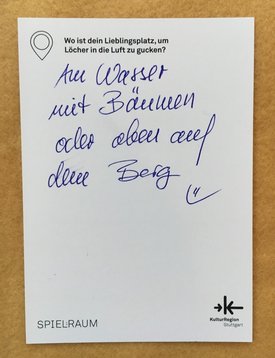 Wo ist dein Lieblingsplatz, um
Löcher in die Luft zu gucken?
Am Wasser
mit Bäumen
oder oben auf
dem Berg
SPIEL:RAUM
KulturRegion
Stuttgart